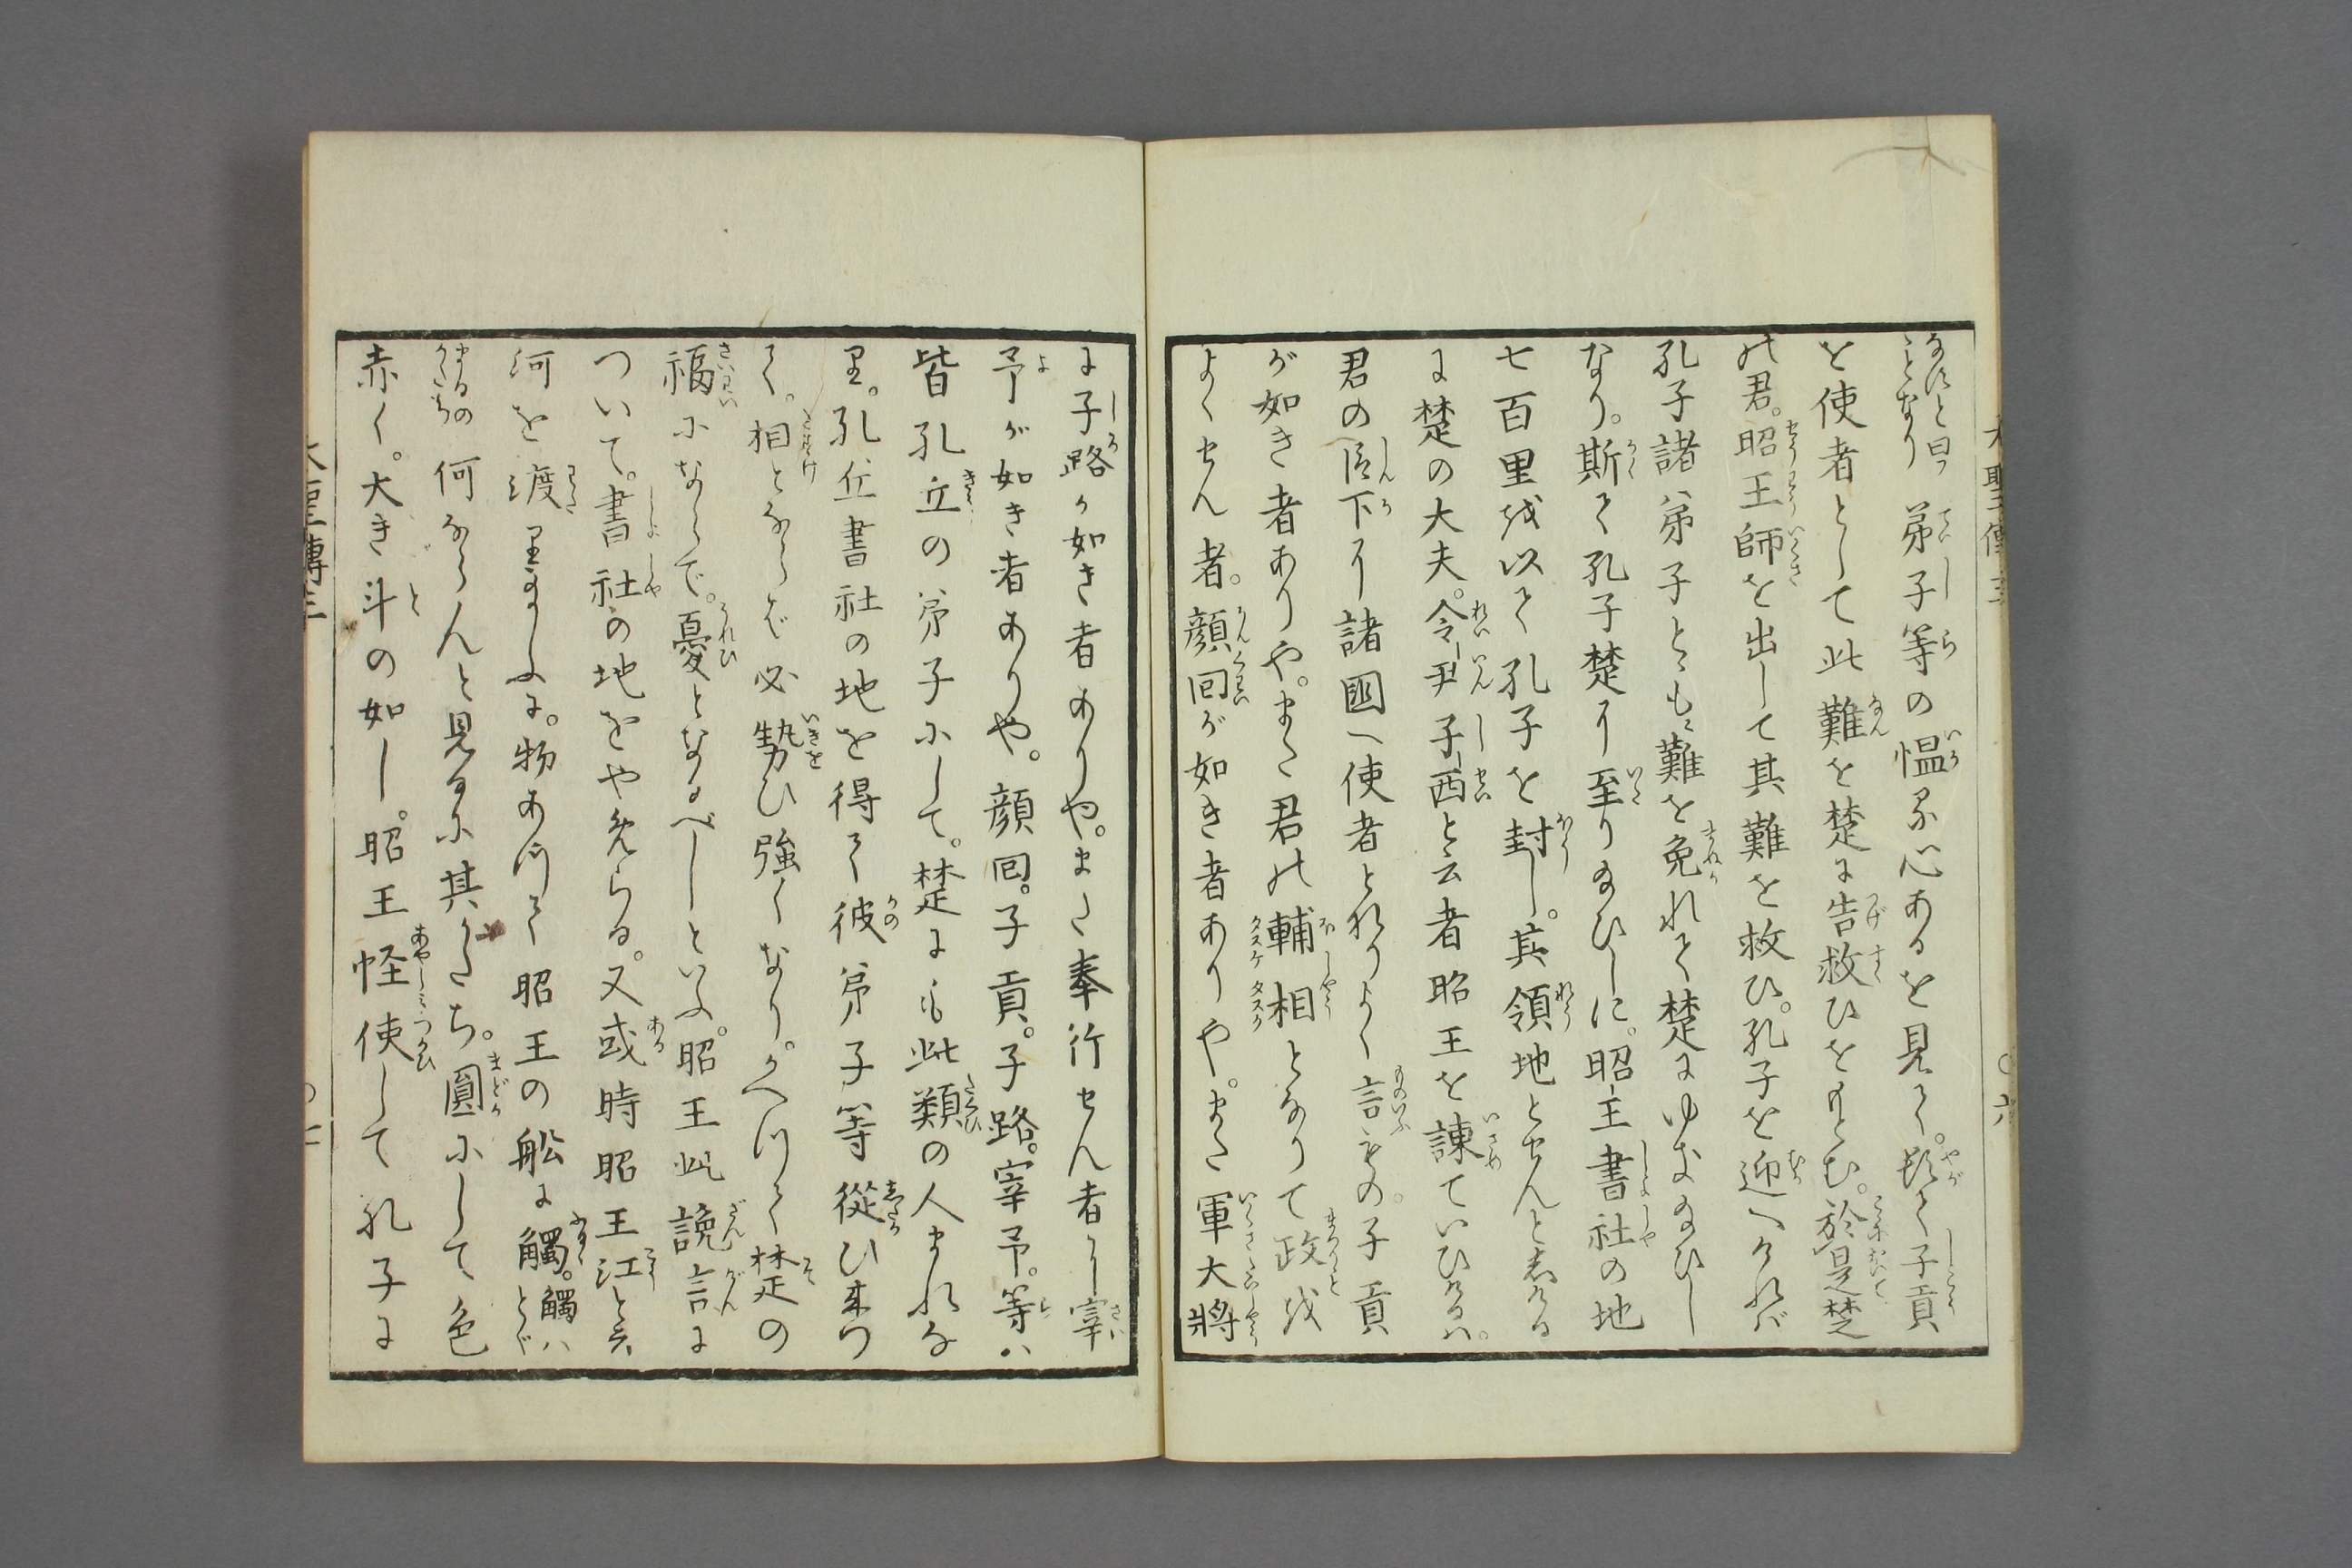 なすと曰ことなり 弟子等の愠る心あるを見て。頓て子貢
を使者として此難を楚に告救ひをもとむ。於是楚
の君。昭王師を出して其難を救ひ。孔子を迎へければ
孔子諸弟子とゝもに難を免れて楚にゆき給ひし
なり。斯て孔子楚に至り給ひしに。昭王書社の地
七百里を以て孔子を封し。其領地とせんと志ける
に楚の大夫。令尹子西と云者昭王を諌ていひけるハ。
君の臣下に諸國へ使者となりよく言もの。子貢
が如き者ありや。また君の輔相となりて政を
よくせん者。顔回が如き者ありや。また軍大將
に子路が如き者ありや。また奉行せん者に宰
予が如き者ありや。顔回。子貢。子路。宰予。等ハ
皆孔丘の弟子にして。楚にも此類の人まれな
り。孔丘書社の地を得て彼弟子等從ひ来つ
て。相とならば必勢ひ強くなり。かへつて楚の
福にならで。憂となるべしといふ。昭王此讒言に
ついて。書社の地をやめらる。又或時昭王江と云
河を渡り給ふに。物あつて昭王の舩に觸。觸ハとぐ
まるの かたち 何ならんと見るに其かたち。圓にして色
赤く。大き斗の如し。昭王怪使して孔子に